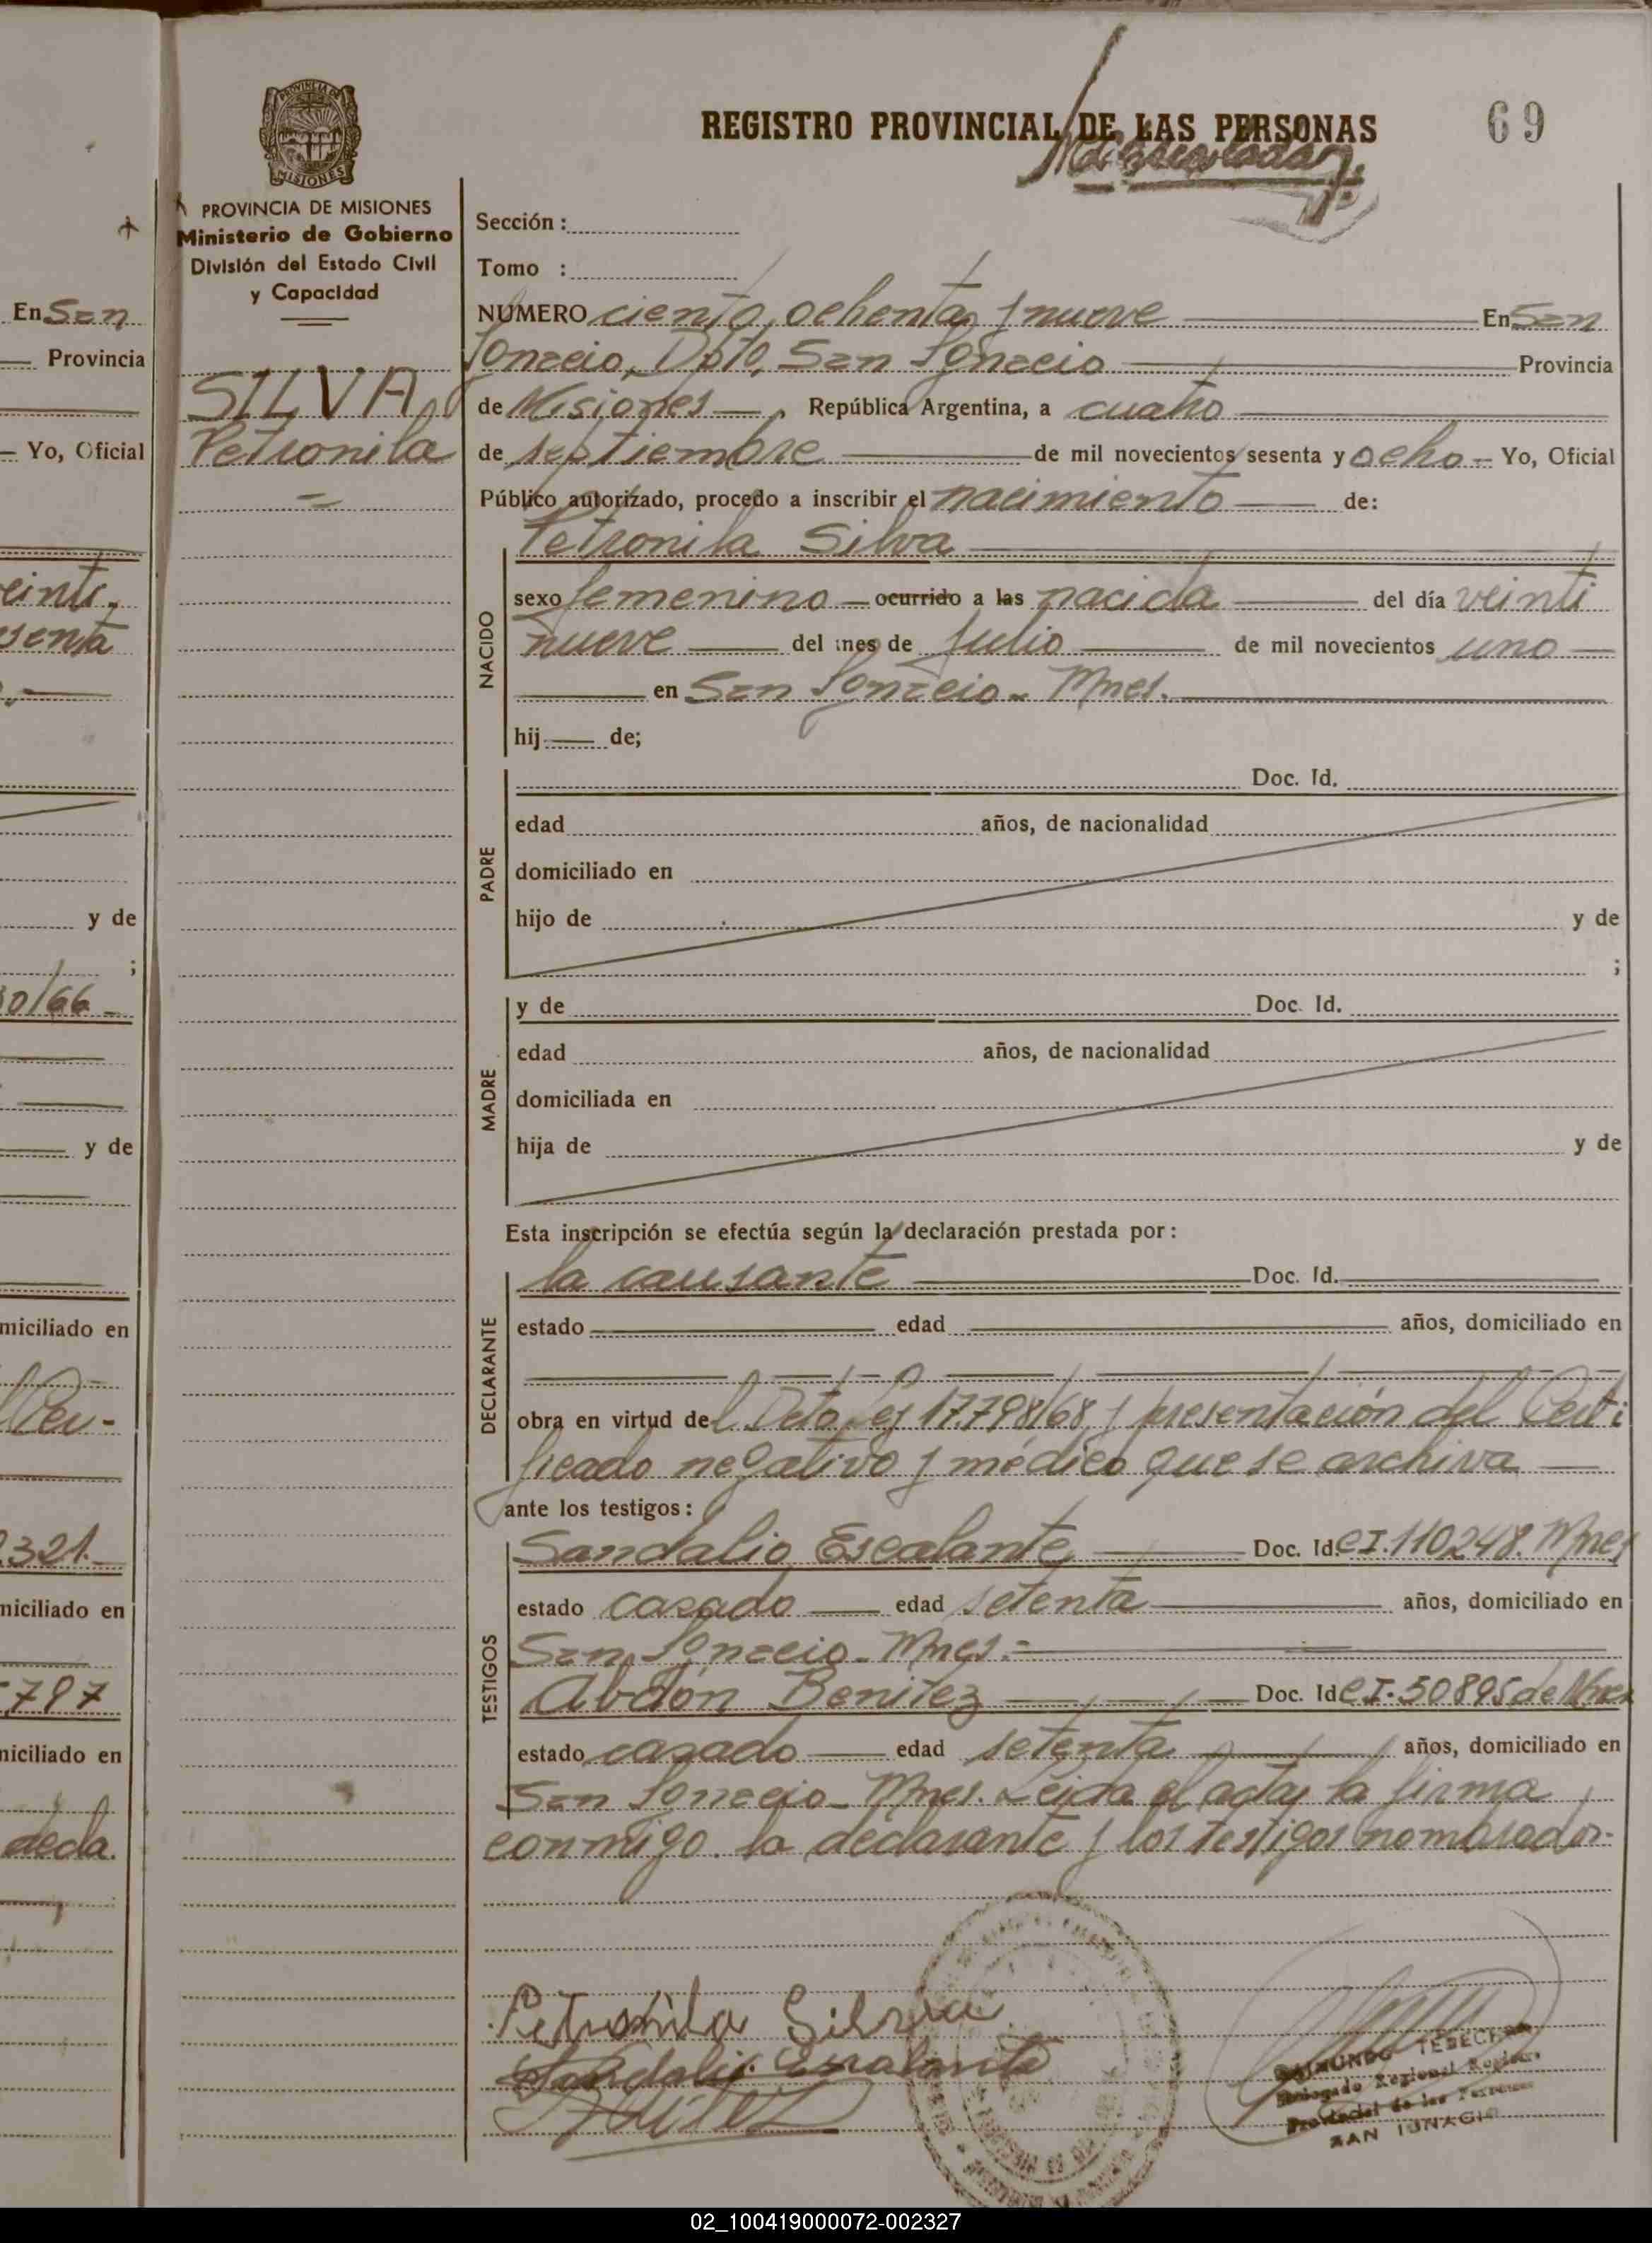 REGISTRO PROVINCIAL DE LAS PERSONAS
69
PROVINCIA DE MISIONES
PROVINCIA DE MISIONES
Ministerio de Gobierno
División del Estado Civil
y Capacidad
SILVA,
Petronila
Sección :
Tomo :
NUMERO ciento ochenta y nueve En San
Ignacio, Dpto. San Ignacio Provincia
de Misiones , República Argentina, a cuatro
de septiembre de mil novecientos sesenta y ocho Yo, Oficial
Público autorizado, procedo a inscribir el nacimiento de:
NACIDO
Petronila Silva
sexo femenino ocurrido a las nacida del día veinti
nueve del mes de Julio de mil novecientos uno
en San Ignacio - Mnes.
hij de;
PADRE
Doc. Id.
edad años, de nacionalidad
domiciliado en
hijo de y de
;
MADRE
y de Doc. Id.
edad años, de nacionalidad
domiciliada en
hija de y de
Esta inscripción se efectúa según la declaración prestada por :
DECLARANTE
la causante Doc. Id.
estado edad años, domiciliado en
obra en virtud del Dcto Ley 17.798/68 y presentación del Certi
ficado negativo y médico que se archiva
ante los testigos :
TESTIGOS
Sandalio Escalante Doc. Id. C.I. 110248. Mnes
estado casado edad setenta años, domiciliado en
San Ignacio - Mnes. =
Abdón Benitez Doc. Id C.I. 50895 de Mnes
estado casado edad setenta años, domiciliado en
San Ignacio - Mnes. Leida el acta, la firma
conmigo la declarante y los testigos nombrados.
Petronila Silva
Sandalio Escalante
Delegado Regional
Provincial de las Personas
SAN IGNACIO
En San
Provincia
Yo, Oficial
veinti-
senta
y de
;
0/66
y de
miciliado en
321.
miciliado en
797
miciliado en
02_100419000072-002327